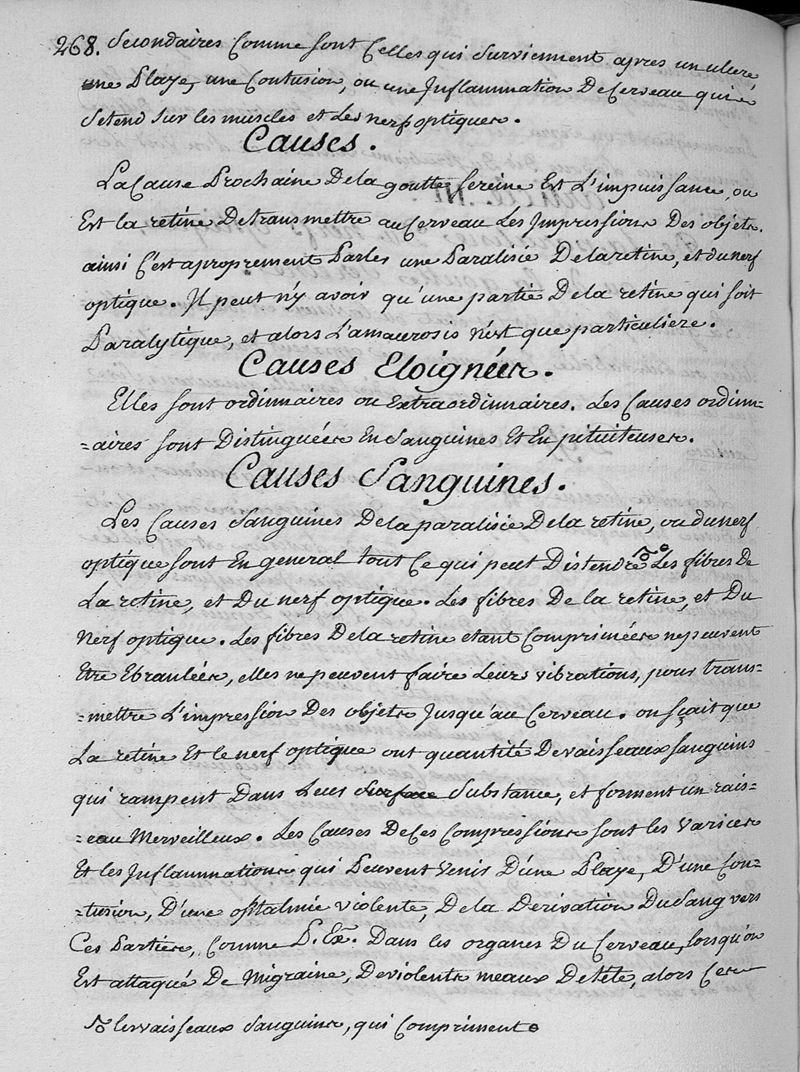 268. Secondaires Comme sont Celles qui surviennent apres un ulcere,
une Playe, une Contusion, ou une Inflammation De Cerveau qui
S'etend sur les muscles et Les nerfs optiques.
Causes.
La Cause Prochaine De la goutte sereine Est L'impuissance, ou
Est la retine De transmettre au Cerveau Les Impressions Des objets.
ainsi C'est a proprement Parler une Paralisie De la retine, et du nerf
optique. Il peut n'y avoir qu'une partie De la retine qui soit
Paralytique, et alors L'amaurosis n'est que particuliere.
Causes Eloignées.
Elles sont ordinnaires ou Extraordinnaires. Les Causes ordinn=
=aires sont Distinguées En Sanguines Et En pituiteuses.
Causes Sanguines.
Les Causes Sanguines De la paralisie De la retine, ou du nerf
optique sont En general tout Ce qui peut Distendre Les fibres De
La retine, et Du nerf optique. Les fibres De la retine, et Du
Nerf optique. Les fibres De la retine etant Comprimées ne peuvent
Etre Ebranlées, elles ne peuvent faire Leurs vibrations, pour trans=
=mettre L'impression Des objets Jusqu'au Cerveau. on sçait que
La retine Et le nerf optique ont quantité De vaisseaux sanguins
qui rampent Dans Leur surface Substance, et forment un rais=
=eau Merveilleux. Les Causes De Ces Compressions sont les Varices
Et les Inflammations qui Peuvent Venir D'une Playe, D'une Con=
=tusion, D'une oftalmie violente, De la Derivation Du Sang vers
Ces Parties, Comme P. Ex. Dans les organes Du Cerveau, lorsqu'on
Est attaqué De Migraine, De violents meaux De tete, alors Ces
les vaisseaux Sanguins, qui Compriment